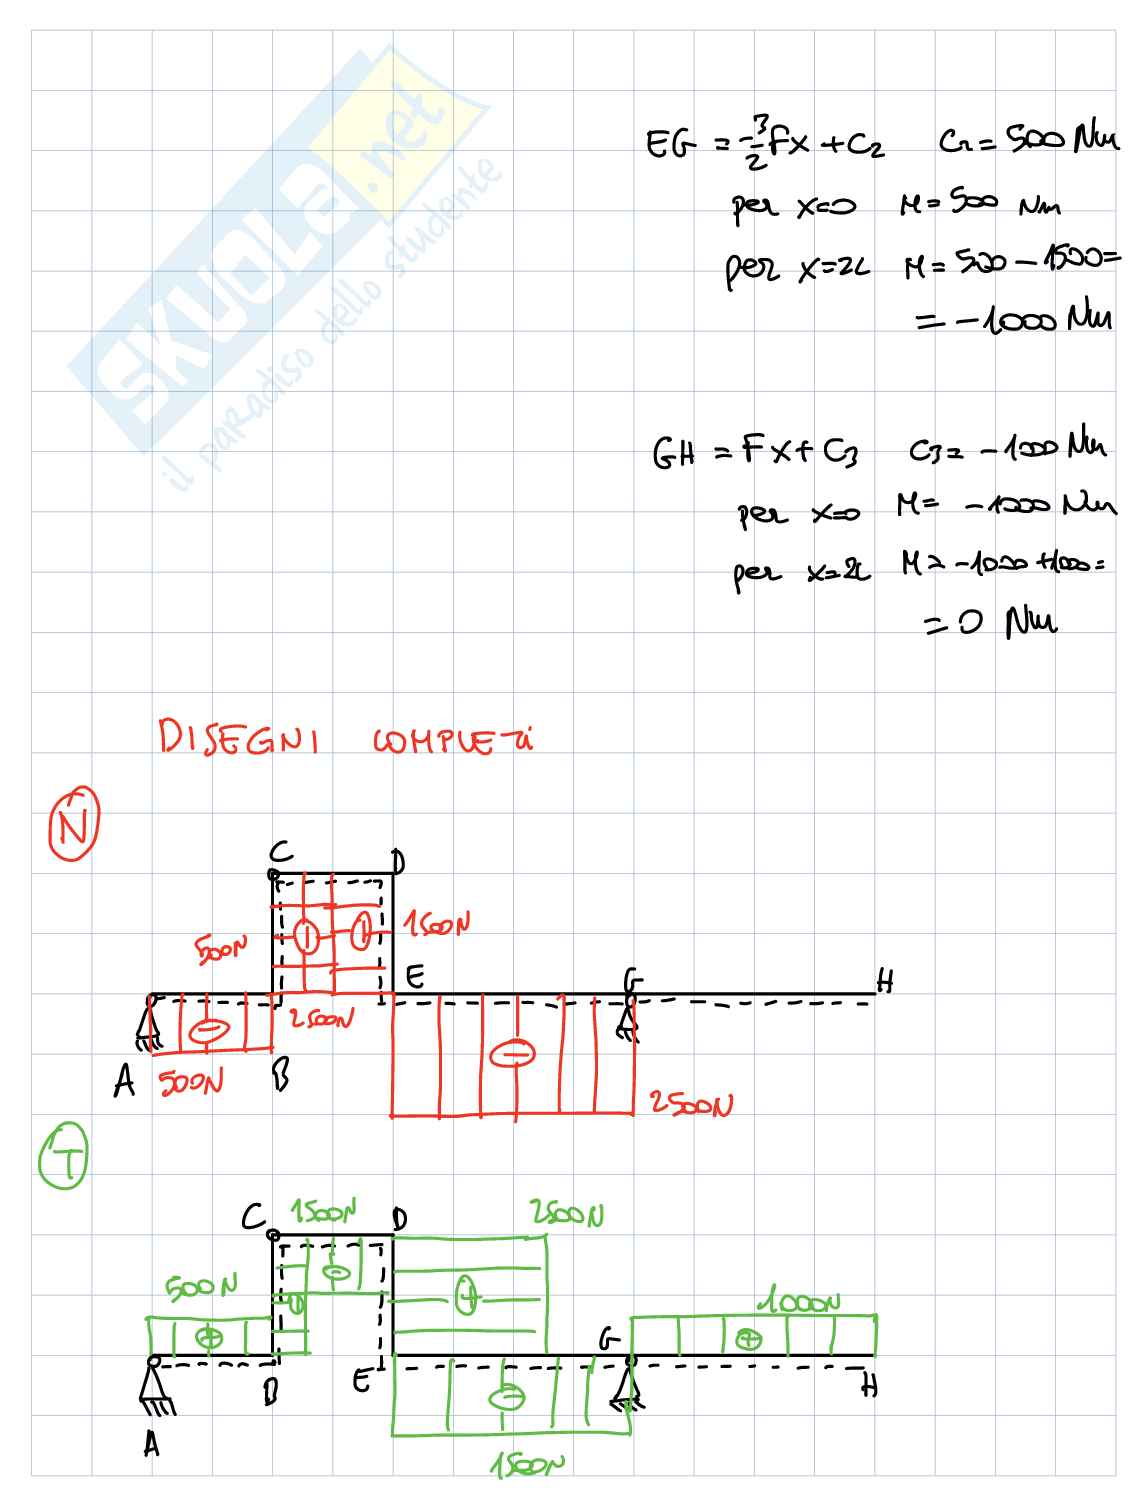 SKUOLA.net
il paradiso dello studente
EG = -3/2 Fx + C2 C2 = 500 Nm
per x=0 M = 500 Nm
per x=2L M = 500 - 1500 =
= -1000 Nm
GH = Fx + C3 C3 = -1000 Nm
per x=0 M = -1000 Nm
per x=2L M = -1000 + 1000 =
= 0 Nm
DISEGNI COMPLETI
N
C D
500N 1500N
E G H
2500N
A 500N B
2500N
T
C 1500N D 2500N
500N 1000N
G
B E H
A
1500N